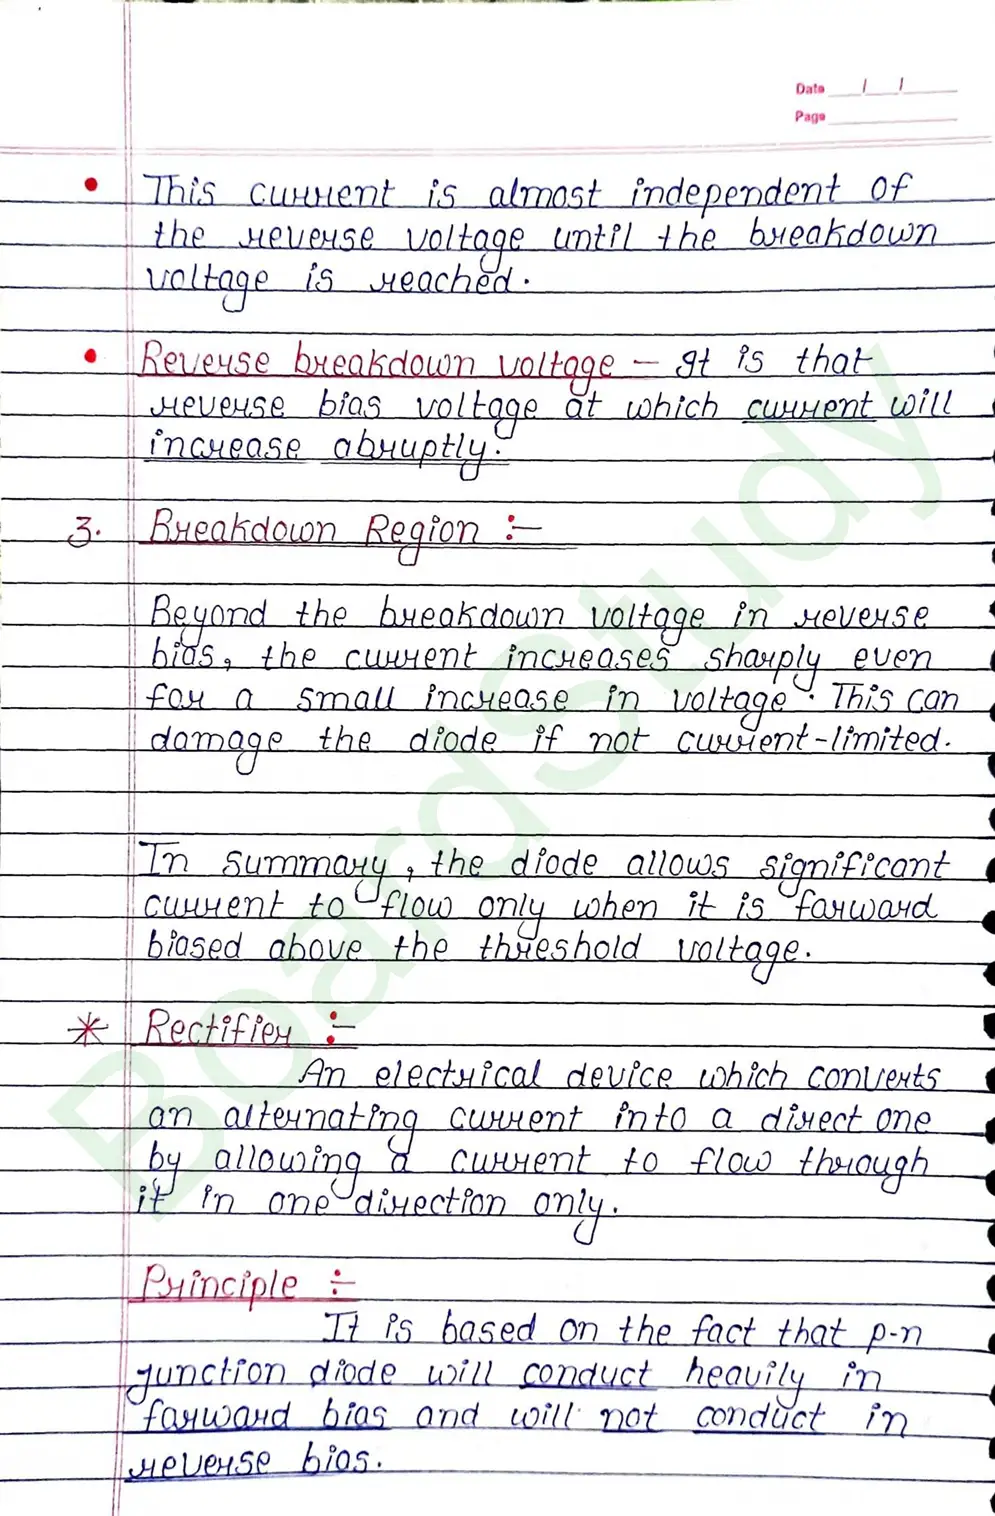 Date / /
Page
• This current is almost independent of
the reverse voltage until the breakdown
voltage is reached.
• Reverse breakdown voltage – It is that
reverse bias voltage at which current will
increase abruptly.
3. Breakdown Region :-
Beyond the breakdown voltage in reverse
bias, the current increases sharply even
for a small increase in voltage. This can
damage the diode if not current-limited.
In summary, the diode allows significant
current to flow only when it is forward
biased above the threshold voltage.
* Rectifier :-
An electrical device which converts
an alternating current into a direct one
by allowing a current to flow through
it in one direction only.
Principle :-
It is based on the fact that p-n
junction diode will conduct heavily in
forward bias and will not conduct in
reverse bias.
BoardStudy